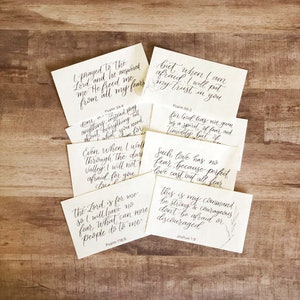 I prayed to the
Lord and he answered
me. He freed me
from all my fears
Psalm 34:4
but when I am
afraid, I will put
my trust in you
Psalm 56:3
for God has not given
us a spirit of fear and
timidity but
Even when I walk
through the dark
valley I will not
afraid for you
Such love has no
fear because perfect
love cast out all fear
The Lord is for me
so I will have no
fear. What can mere
people do to me?
Psalm 118:6
this is my command
be strong & courageous
don't be afraid or
discouraged.
Joshua 1:9